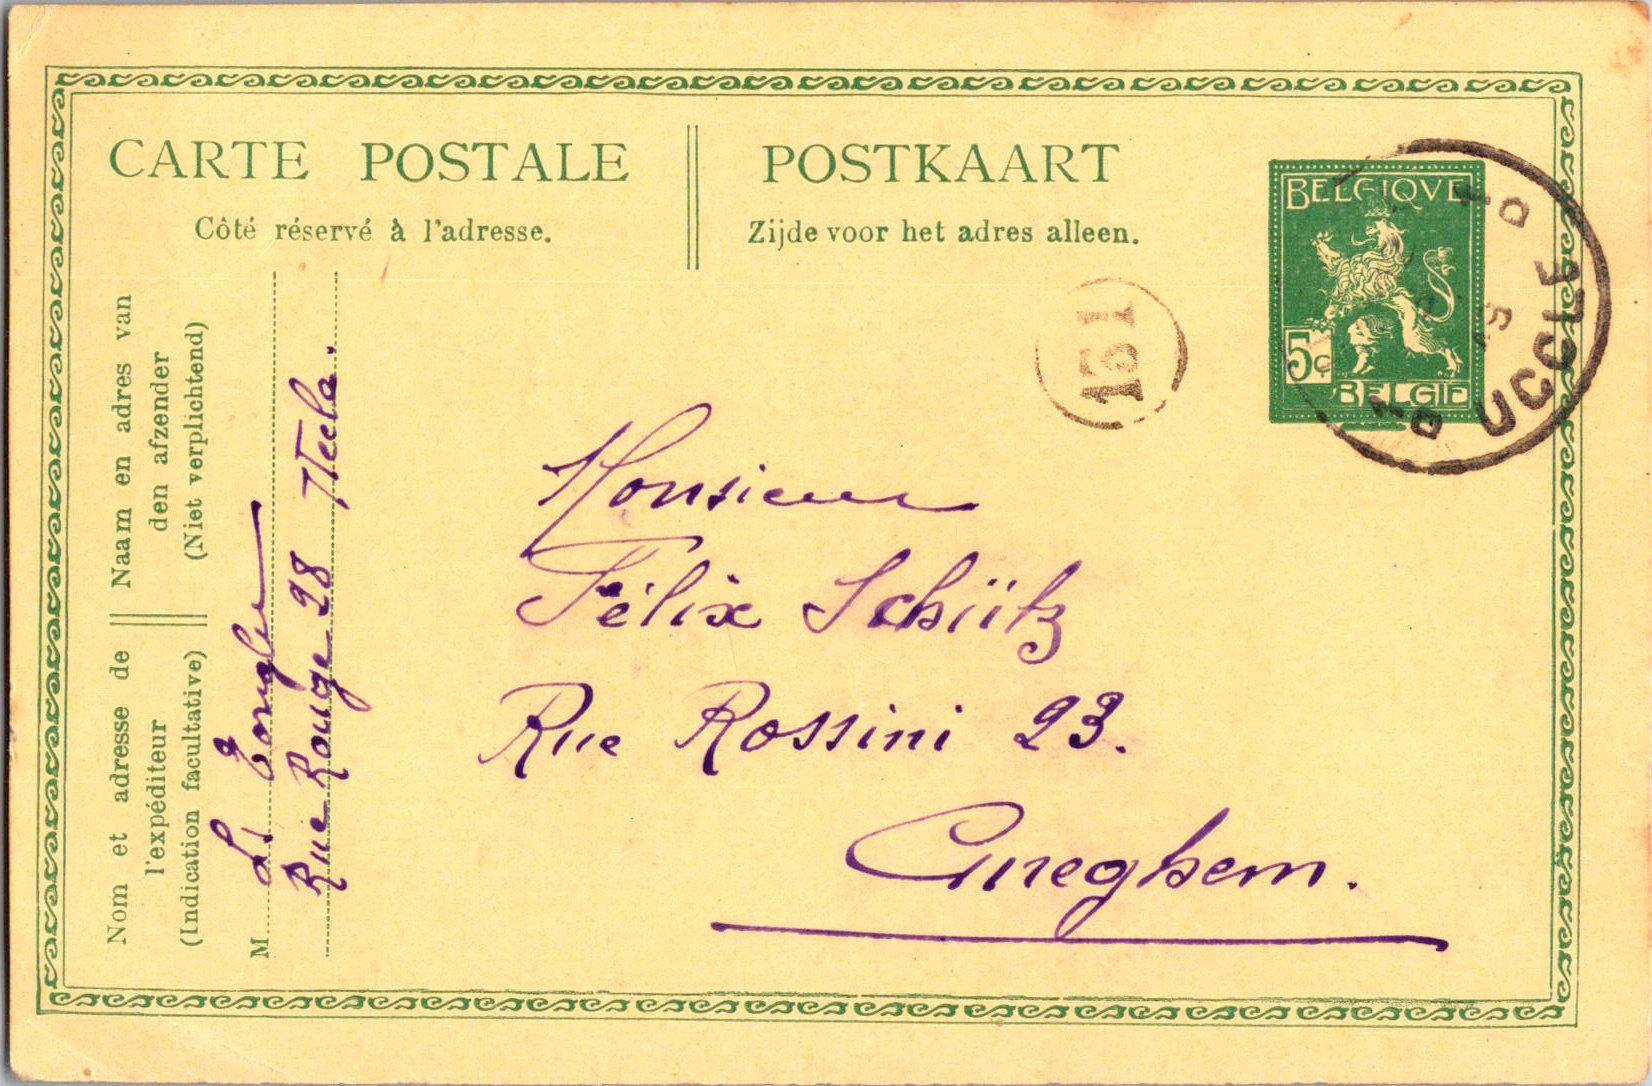 CARTE POSTALE
Côté réservé à l'adresse.
POSTKAART
Zijde voor het adres alleen.
BELGIQVE
5c
BELGIË
UCCLE
151
Naam en adres van
den afzender
(Niet verplichtend)
Nom et adresse de
l'expéditeur
(Indication facultative)
M
Rue Rouge 28
Monsieur
Félix Schütz
Rue Rossini 23.
Cureghem.